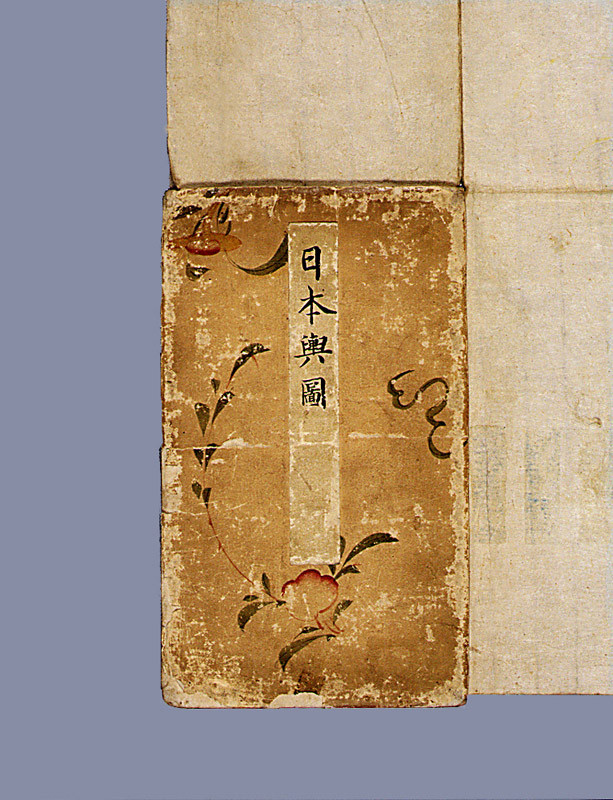 日本輿圖